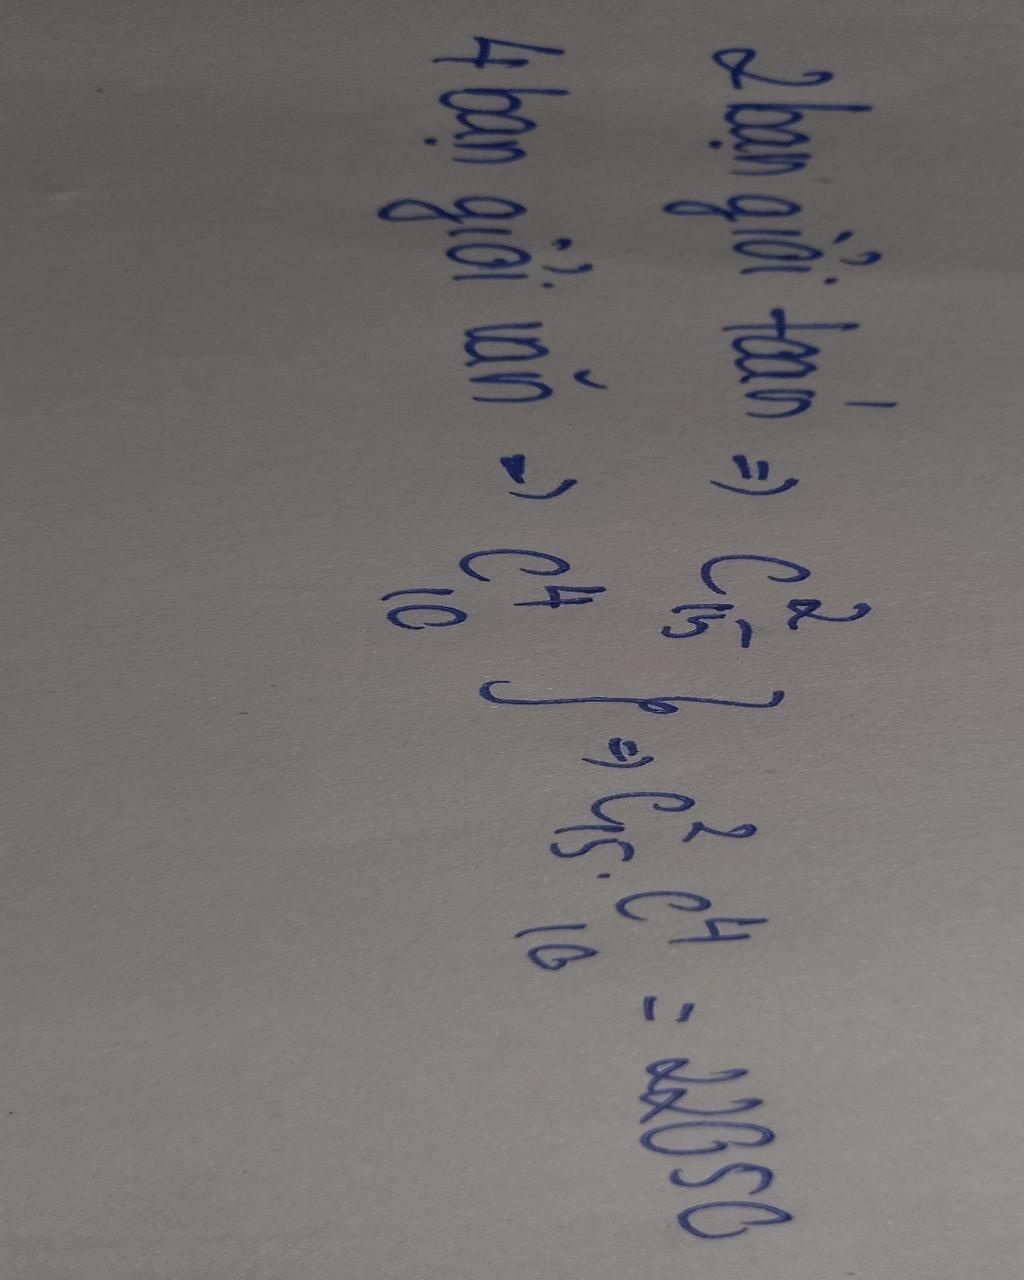 2 bạn giỏi toán => C²₁₅
4 bạn giỏi văn => C⁴₁₀
} => C²₁₅ . C⁴₁₀ = 22050